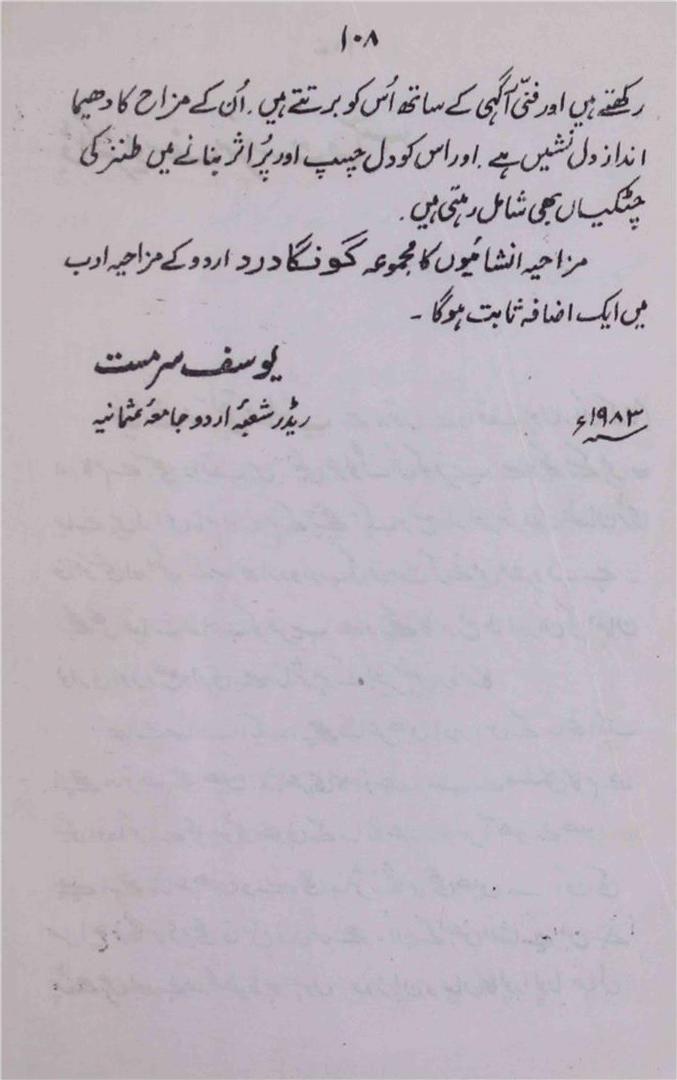 ۱۰۸
رکھتے ہیں اور فنّی آگہی کے ساتھ اُس کو برتتے ہیں۔ اُن کے مزاح کا دھیما
انداز دل نشیں ہے۔ اور اس کو دل چسپ اور پُر اثر بنانے میں طنز کی
چٹکیاں بھی شامل رہتی ہیں۔
مزاحیہ انشائیوں کا مجموعہ گونگا درد اردو کے مزاحیہ ادب
میں ایک اضافہ ثابت ہوگا ۔
یوسف سرمست
ریڈر شعبۂ اردو جامعۂ عثمانیہ
۱۹۸۳ء